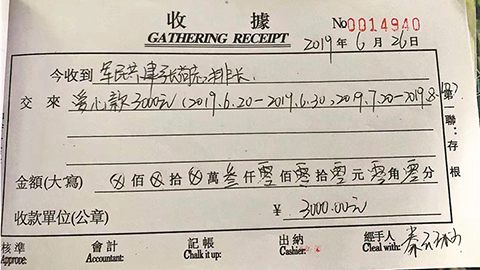 收據
GATHERING RECEIPT
No 0014940
2019年6月26日
今收到 军民共建张 排长.
交來 爱心款3000元(2019.6.20-2019.6.30,2019.7.20-2019.8.
第二聯:存根
金額(大寫) ⊗佰⊗拾⊗萬叁仟零佰零拾零元零角零分
收款單位(公章) ¥ 3000.00元
核準 會計 記帳 出納 經手人 秦
Apprope: Accountant: Chalk it up: Cashier: Cleal with: